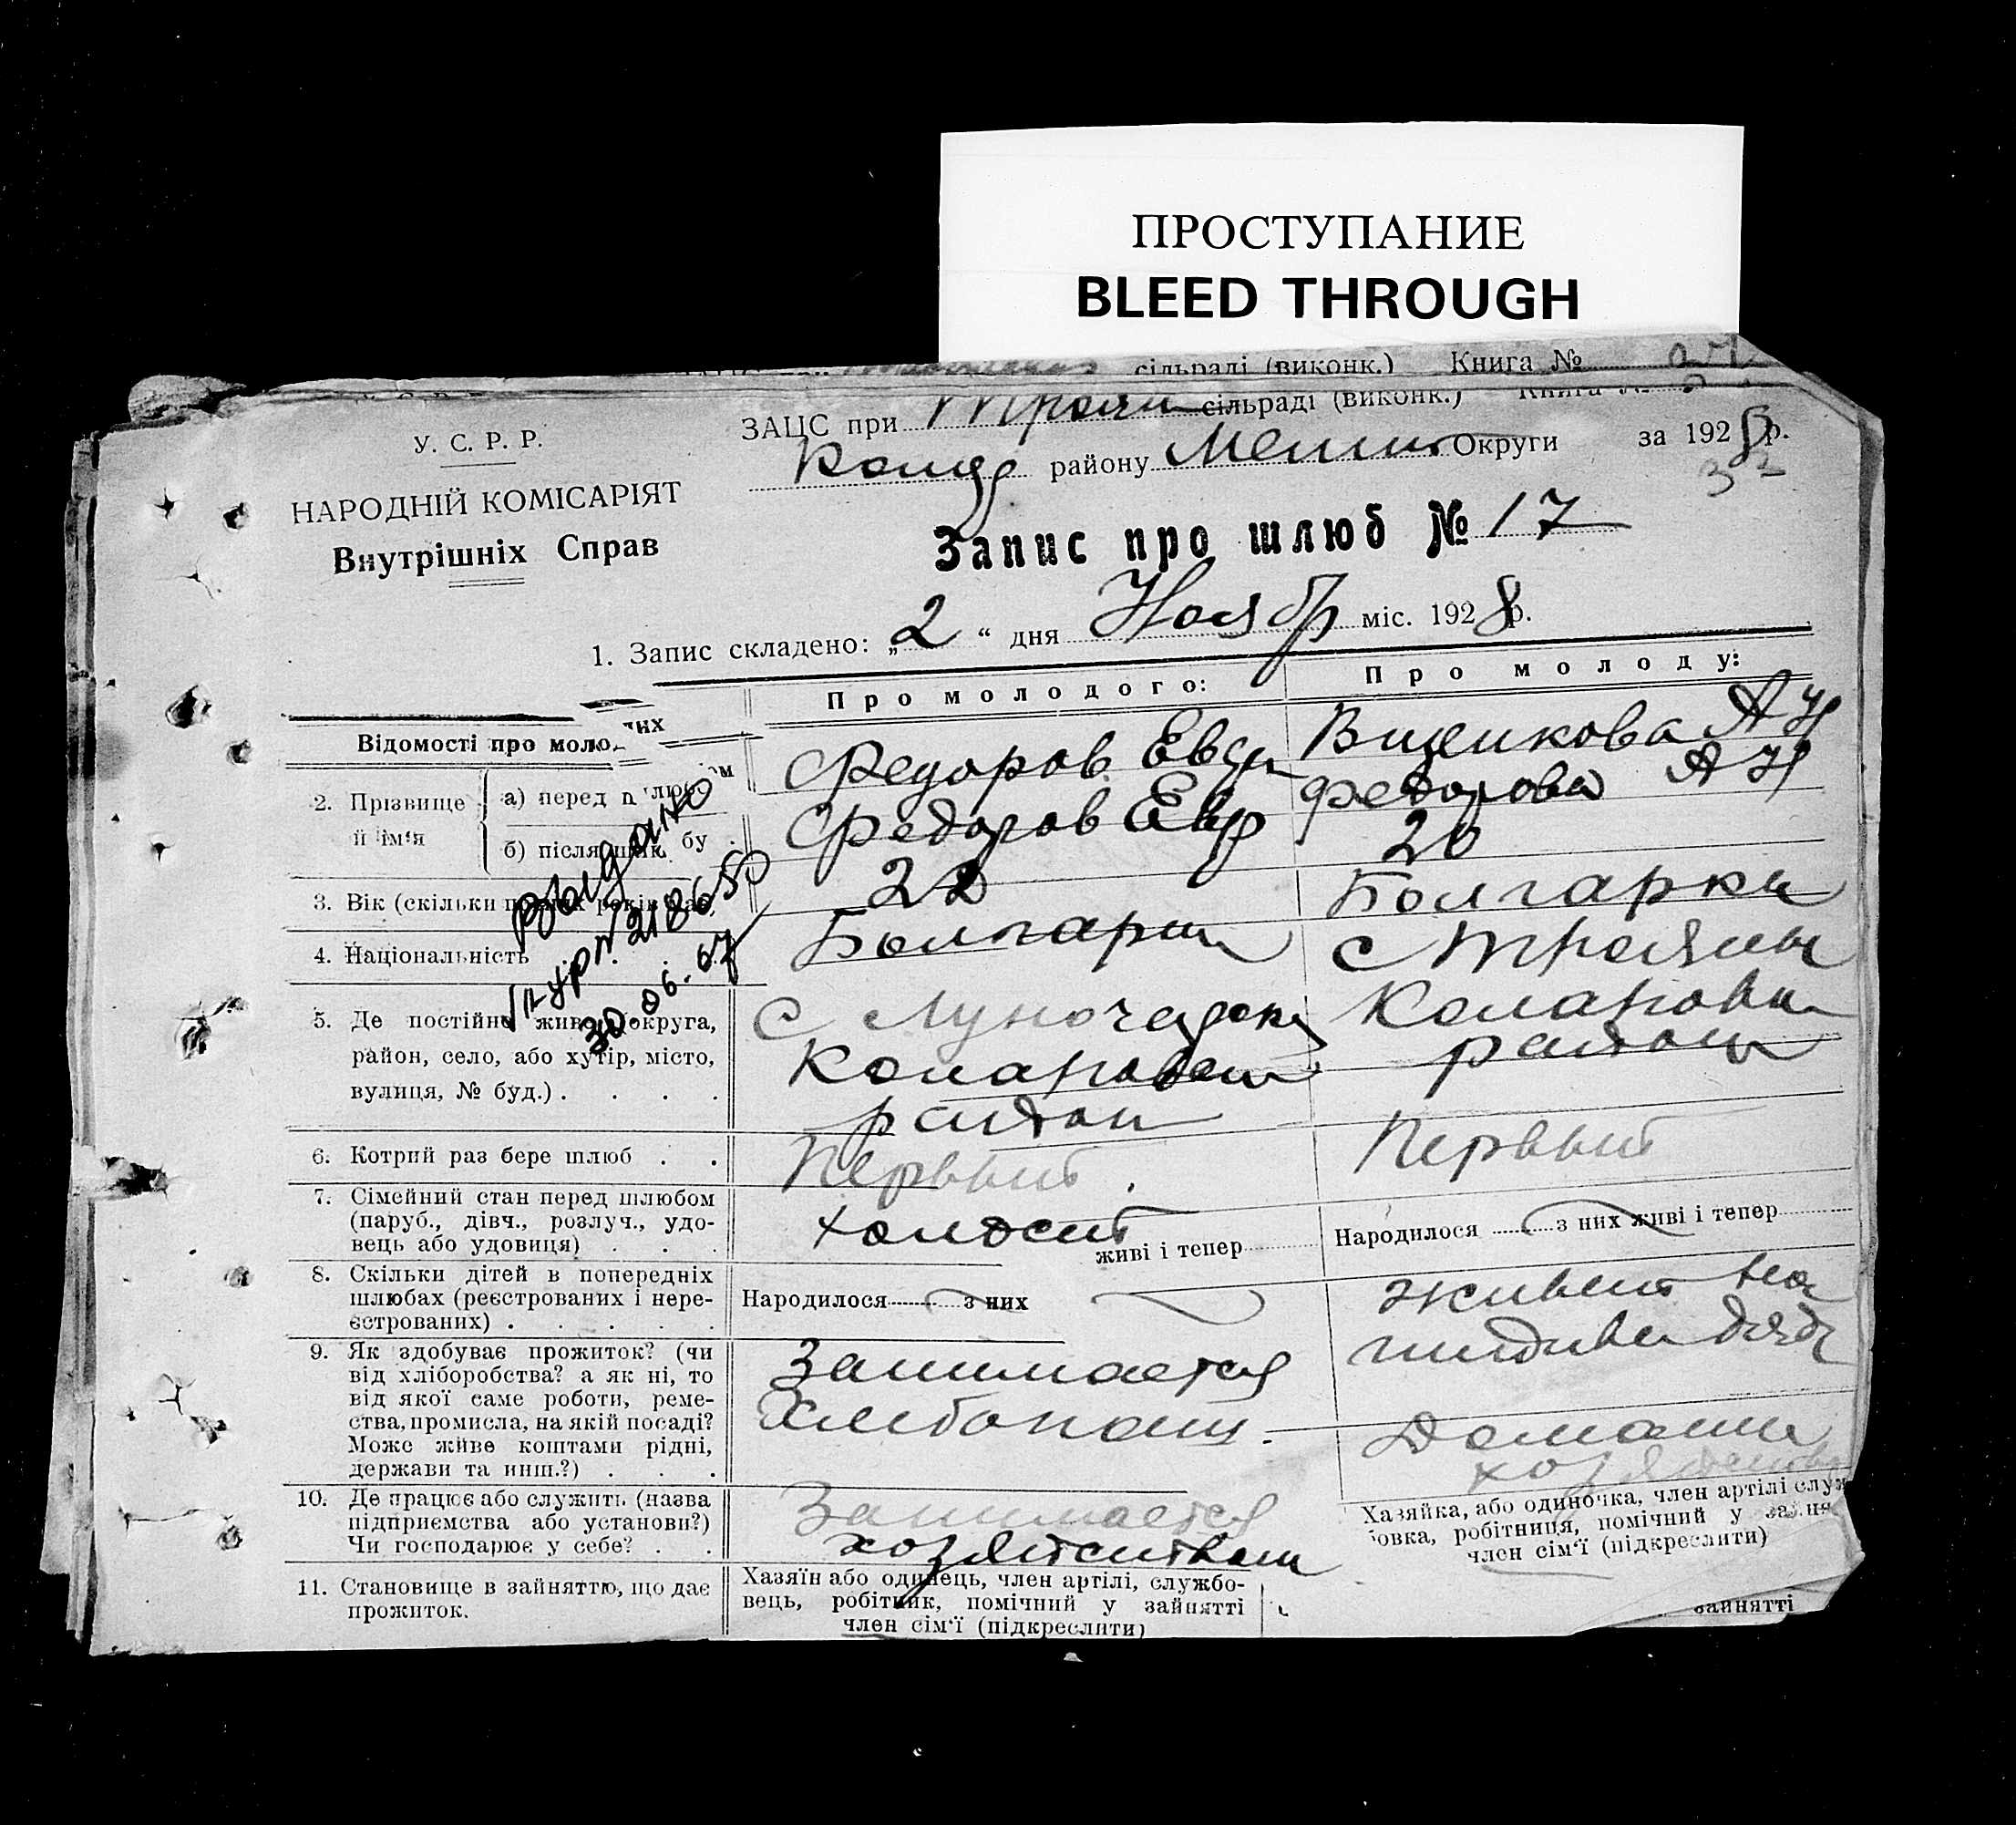 ПРОСТУПАНИЕ
BLEED THROUGH
сільраді (виконк.) Книга №
ЗАЦС при Троян сільраді (виконк.)
району Округи за 1928 р.
У. С. Р. Р.
НАРОДНІЙ КОМІСАРІЯТ
Внутрішніх Справ
Запис про шлюб № 17
1. Запис складено: „2“ дня Ноябр міс. 1928 р.
Відомості про молодих
Про молодого:
Про молоду:
2. Прізвище й ім'я
а) перед шлюбом
Федоров Евд
А Н
б) після шлюбу
Федоров Евд
Федорова А Н
3. Вік (скільки
22
20
4. Національність
Болгарин
Болгарка
Выдано
№ 218650
30.06.67
5. Де постійно живе (округа,
район, село, або хутір, місто,
вулиця, № буд.) . . . .
с
район
с Трояны
район
6. Котрий раз бере шлюб . .
Первый
Первый
7. Сімейний стан перед шлюбом
(паруб., дівч., розлуч., удо-
вець або удовиця) . . .
холост
8. Скільки дітей в попередніх
шлюбах (реєстрованих і нере-
єстрованих) . . . . .
Народилося з них живі і тепер
Народилося з них живі і тепер
9. Як здобуває прожиток? (чи
від хліборобства? а як ні, то
від якої саме роботи, реме-
ства, промисла, на якій посаді?
Може живе коштами рідні,
держави та инш.?) . . .
Занимается
Хлебопаш.
живет на
10. Де працює або служить (назва
підприємства або установи?)
Чи господарює у себе? . .
Занимается
хозяйством
Домашн
11. Становище в зайняттю, що дає
прожиток.
Хазяїн або одинець, член артілі, службо-
вець, робітник, помічний у зайнятті
член сім'ї (підкреслити)
Хазяйка, або одиночка, член артілі служ
бовка, робітниця, помічний у зайня
член сім'ї (підкреслити)
зайнятті